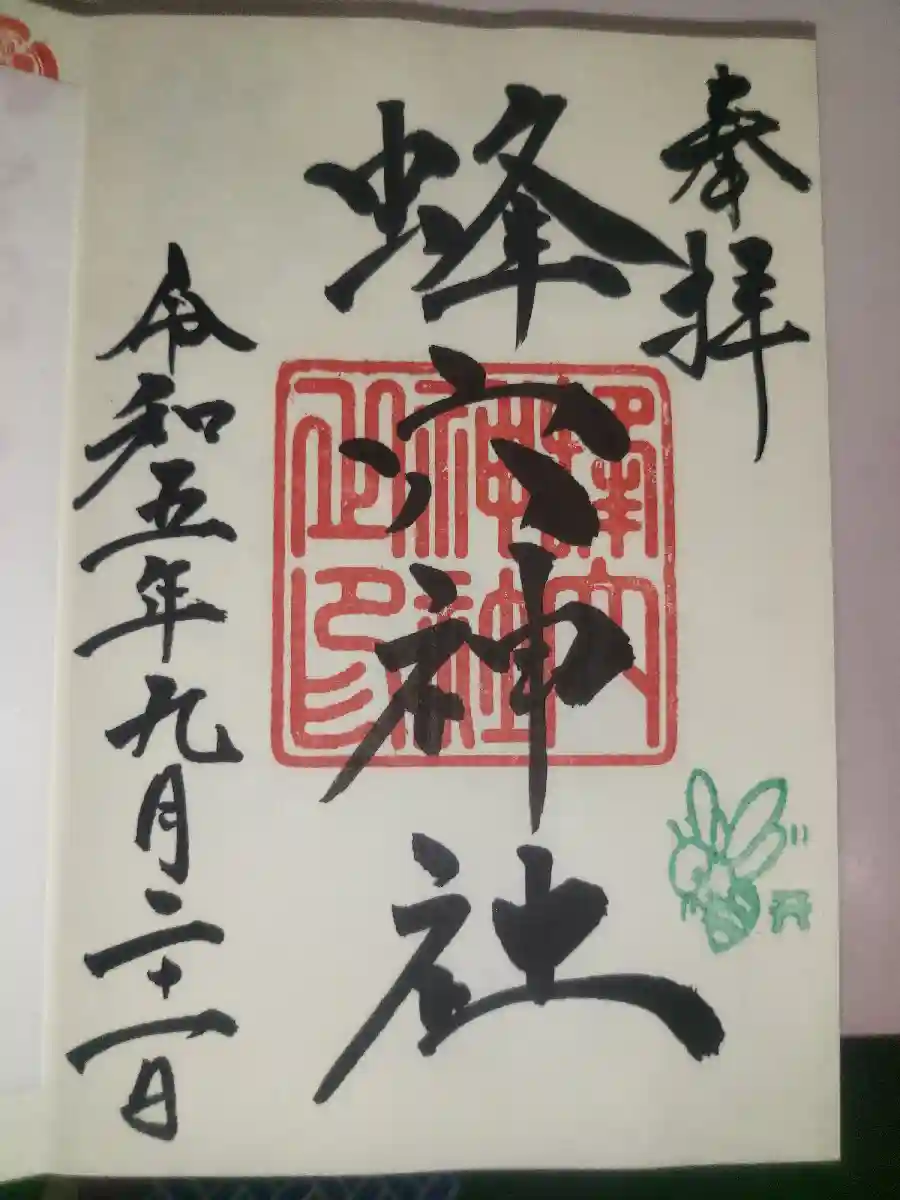 奉拝
蜂穴神社
令和五年九月二十一日
穴
神社
之印